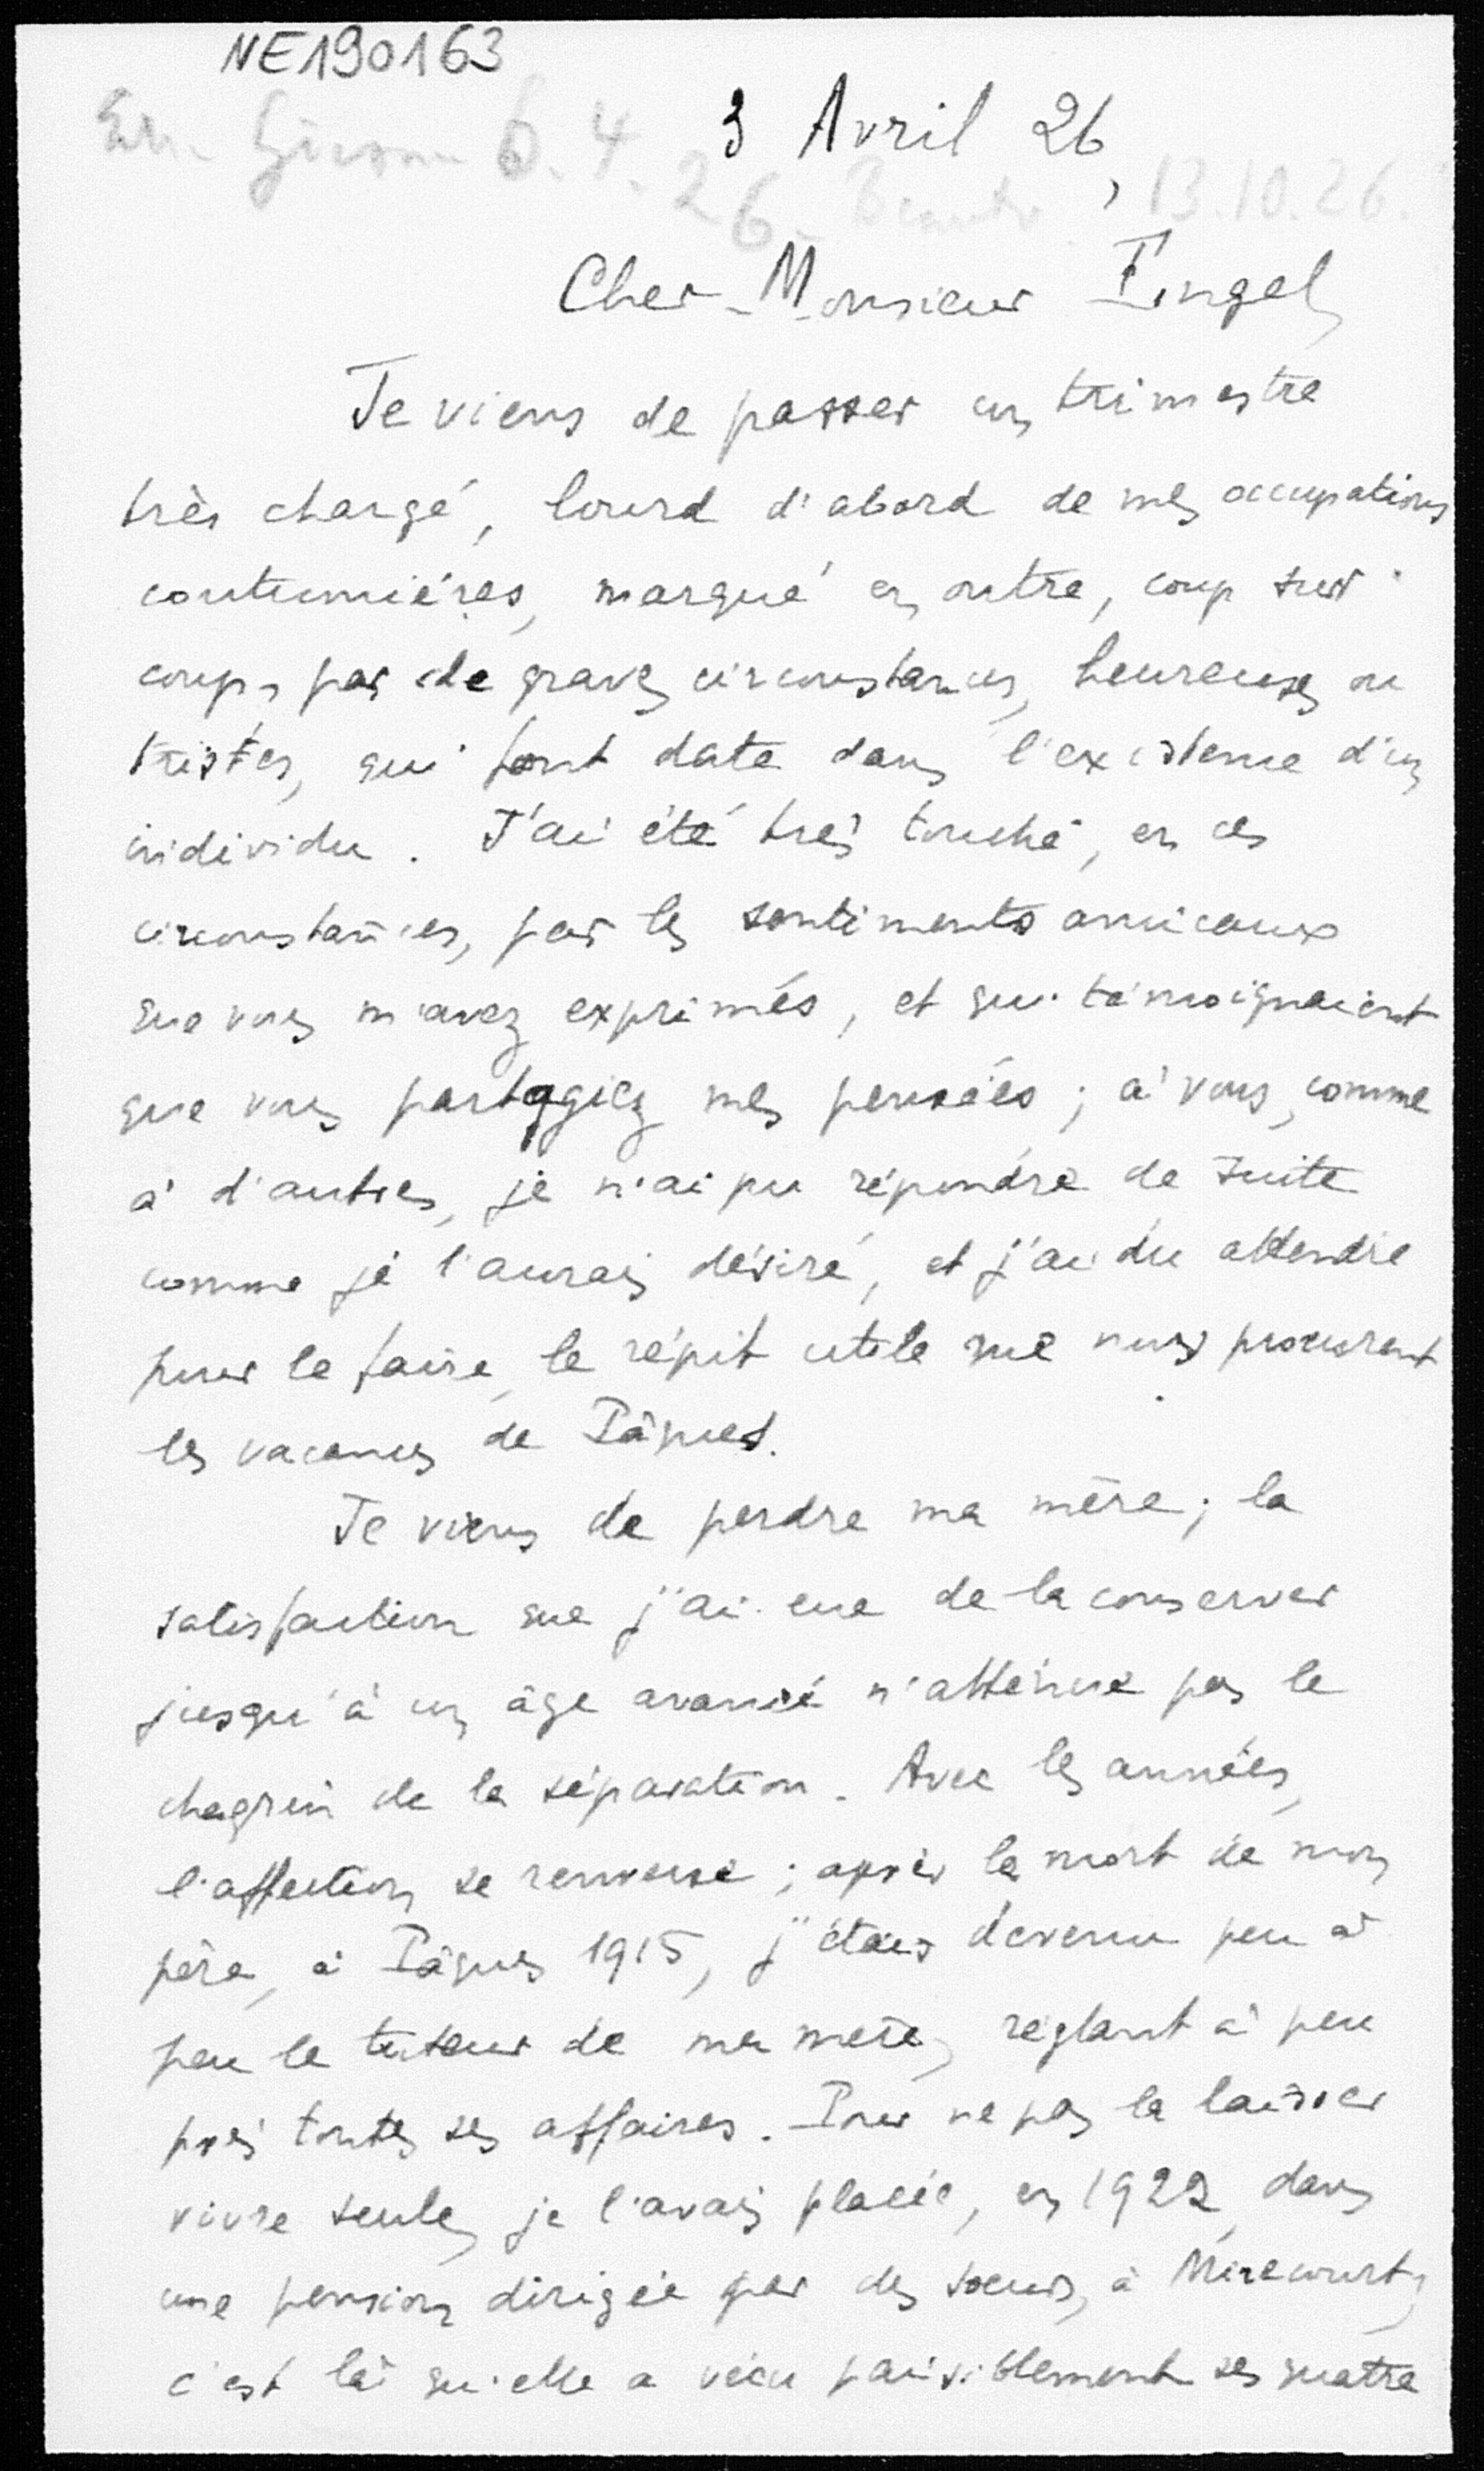 NE190163
6.4.26 13.10.26.
3 Avril 26,
Cher Monsieur
Je viens de passer un trimestre
très chargé, lourd d'abord de mes occupations
coutumières, marqué en outre, coup sur
coup, par de graves circonstances, heureuses ou
tristes, qui font date dans l'existence d'un
individu. J'ai été très touché, en ces
circonstances, par les sentiments amicaux
que vous m'avez exprimés, et qui témoignaient
que vous partagiez mes pensées ; à vous, comme
à d'autres, je n'ai pu répondre de suite
comme je l'aurais désiré, et j'ai du attendre
pour le faire, le répit utile que nous procurent
les vacances de Pâques.
Je viens de perdre ma mère ; la
satisfaction que j'ai eue de la conserver
jusqu'à un âge avancé n'atténue pas le
chagrin de la séparation. Avec les années,
l'affection se renverse ; après la mort de mon
père, à Pâques 1915, j'étais devenu peu à
peu le tuteur de ma mère, réglant à peu
près toutes ses affaires. Pour ne pas la laisser
vivre seule, je l'avais placée, en 1922, dans
une pension dirigée par des soeurs, à Mirecourt,
c'est là qu'elle a vécu paisiblement ses quatre